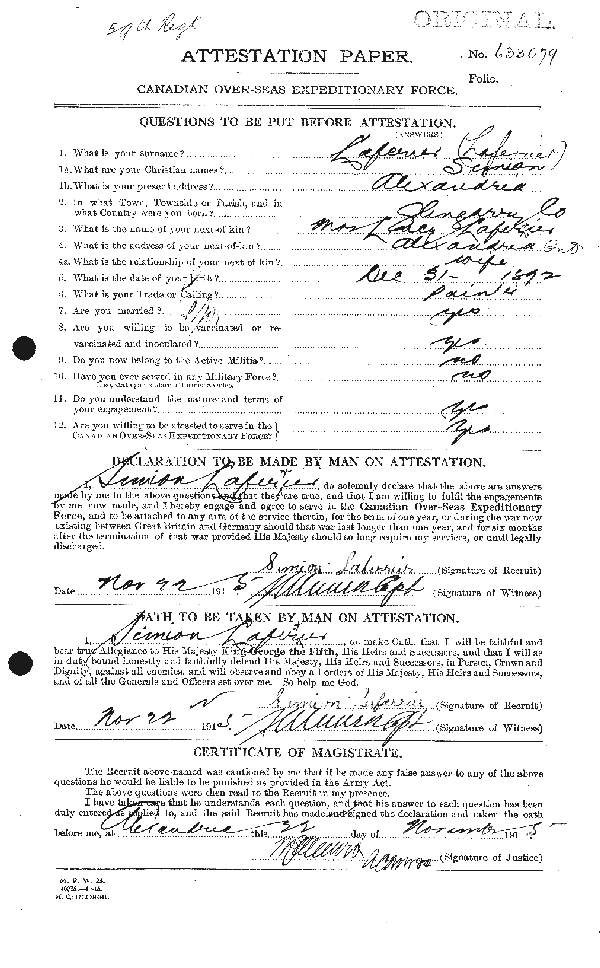 59th Regt
ORIGINAL
ATTESTATION PAPER.
No. 633079
Folio.
CANADIAN OVER-SEAS EXPEDITIONARY FORCE.
QUESTIONS TO BE PUT BEFORE ATTESTATION.
(ANSWERS)
1. What is your surname? Laferier (Laferier)
1a. What are your Christian names? Simion
1b. What is your present address? Alexandria
2. In what Town, Township or Parish, and in
what Country were you born? Glengarry Co
3. What is the name of your next-of-kin? Mrs Laferier
4. What is the address of your next-of-kin? Alexandria Ont
4a. What is the relationship of your next-of-kin? wife
5. What is the date of your birth? Dec 31 - 1892
6. What is your Trade or Calling? Painter
7. Are you married? yes
8. Are you willing to be vaccinated or re-
vaccinated and inoculated? yes
9. Do you now belong to the Active Militia? no
10. Have you ever served in any Military Force? no
11. Do you understand the nature and terms of
your engagement? yes
12. Are you willing to be attested to serve in the
CANADIAN OVER-SEAS EXPEDITIONARY FORCE? yes
DECLARATION TO BE MADE BY MAN ON ATTESTATION.
I, Simion Laferier, do solemnly declare that the above are answers
made by me to the above questions and that they are true, and that I am willing to fulfil the engagements
by me now made, and I hereby engage and agree to serve in the Canadian Over-Seas Expeditionary
Force, and to be attached to any arm of the service therein, for the term of one year, or during the war now
existing between Great Britain and Germany should that war last longer than one year, and for six months
after the termination of that war provided His Majesty should so long require my services, or until legally
discharged.
Simion Laferier (Signature of Recruit)
Date Nov 22 1915 (Signature of Witness)
OATH TO BE TAKEN BY MAN ON ATTESTATION.
I, Simion Laferier, do make Oath, that I will be faithful and
bear true Allegiance to His Majesty King George the Fifth, His Heirs and Successors, and that I will as
in duty bound honestly and faithfully defend His Majesty, His Heirs and Successors, in Person, Crown and
Dignity, against all enemies, and will observe and obey all orders of His Majesty, His Heirs and Successors,
and of all the Generals and Officers set over me. So help me God.
Simion Laferier (Signature of Recruit)
Date Nov 22 1915 (Signature of Witness)
CERTIFICATE OF MAGISTRATE.
The Recruit above-named was cautioned by me that if he made any false answer to any of the above
questions he would be liable to be punished as provided in the Army Act.
The above questions were then read to the Recruit in my presence.
I have taken care that he understands each question, and that his answer to each question has been
duly entered as replied to, and the said Recruit has made and signed the declaration and taken the oath
before me, at Alexandria this 22 day of November 1915
(Signature of Justice)